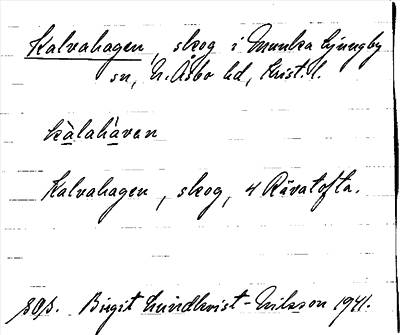 Kalvahagen, skog i Munka Ljungby
sn, N. Åsbo hd, Krist. l.
kàlahàvan
Kalvahagen, skog, 4 Rävatofta.
Birgit Lundkvist-Nilsson 1941.